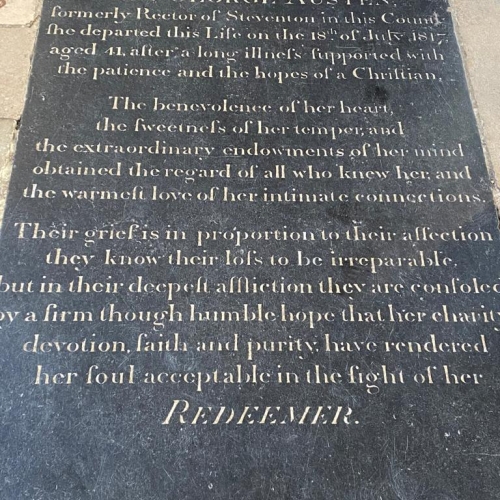 GEORGE AUSTEN,
formerly Rector of Steventon in this County
ſhe departed this Life on the 18th of July 1817,
aged 41, after a long illneſs ſupported with
the patience and the hopes of a Chriſtian.
The benevolence of her heart,
the ſweetneſs of her temper, and
the extraordinary endowments of her mind
obtained the regard of all who knew her, and
the warmeſt love of her intimate connections.
Their grief is in proportion to their affection
they know their loſs to be irreparable,
but in their deepeſt affliction they are conſoled
by a firm though humble hope that her charity,
devotion, faith and purity, have rendered
her ſoul acceptable in the ſight of her
REDEEMER.